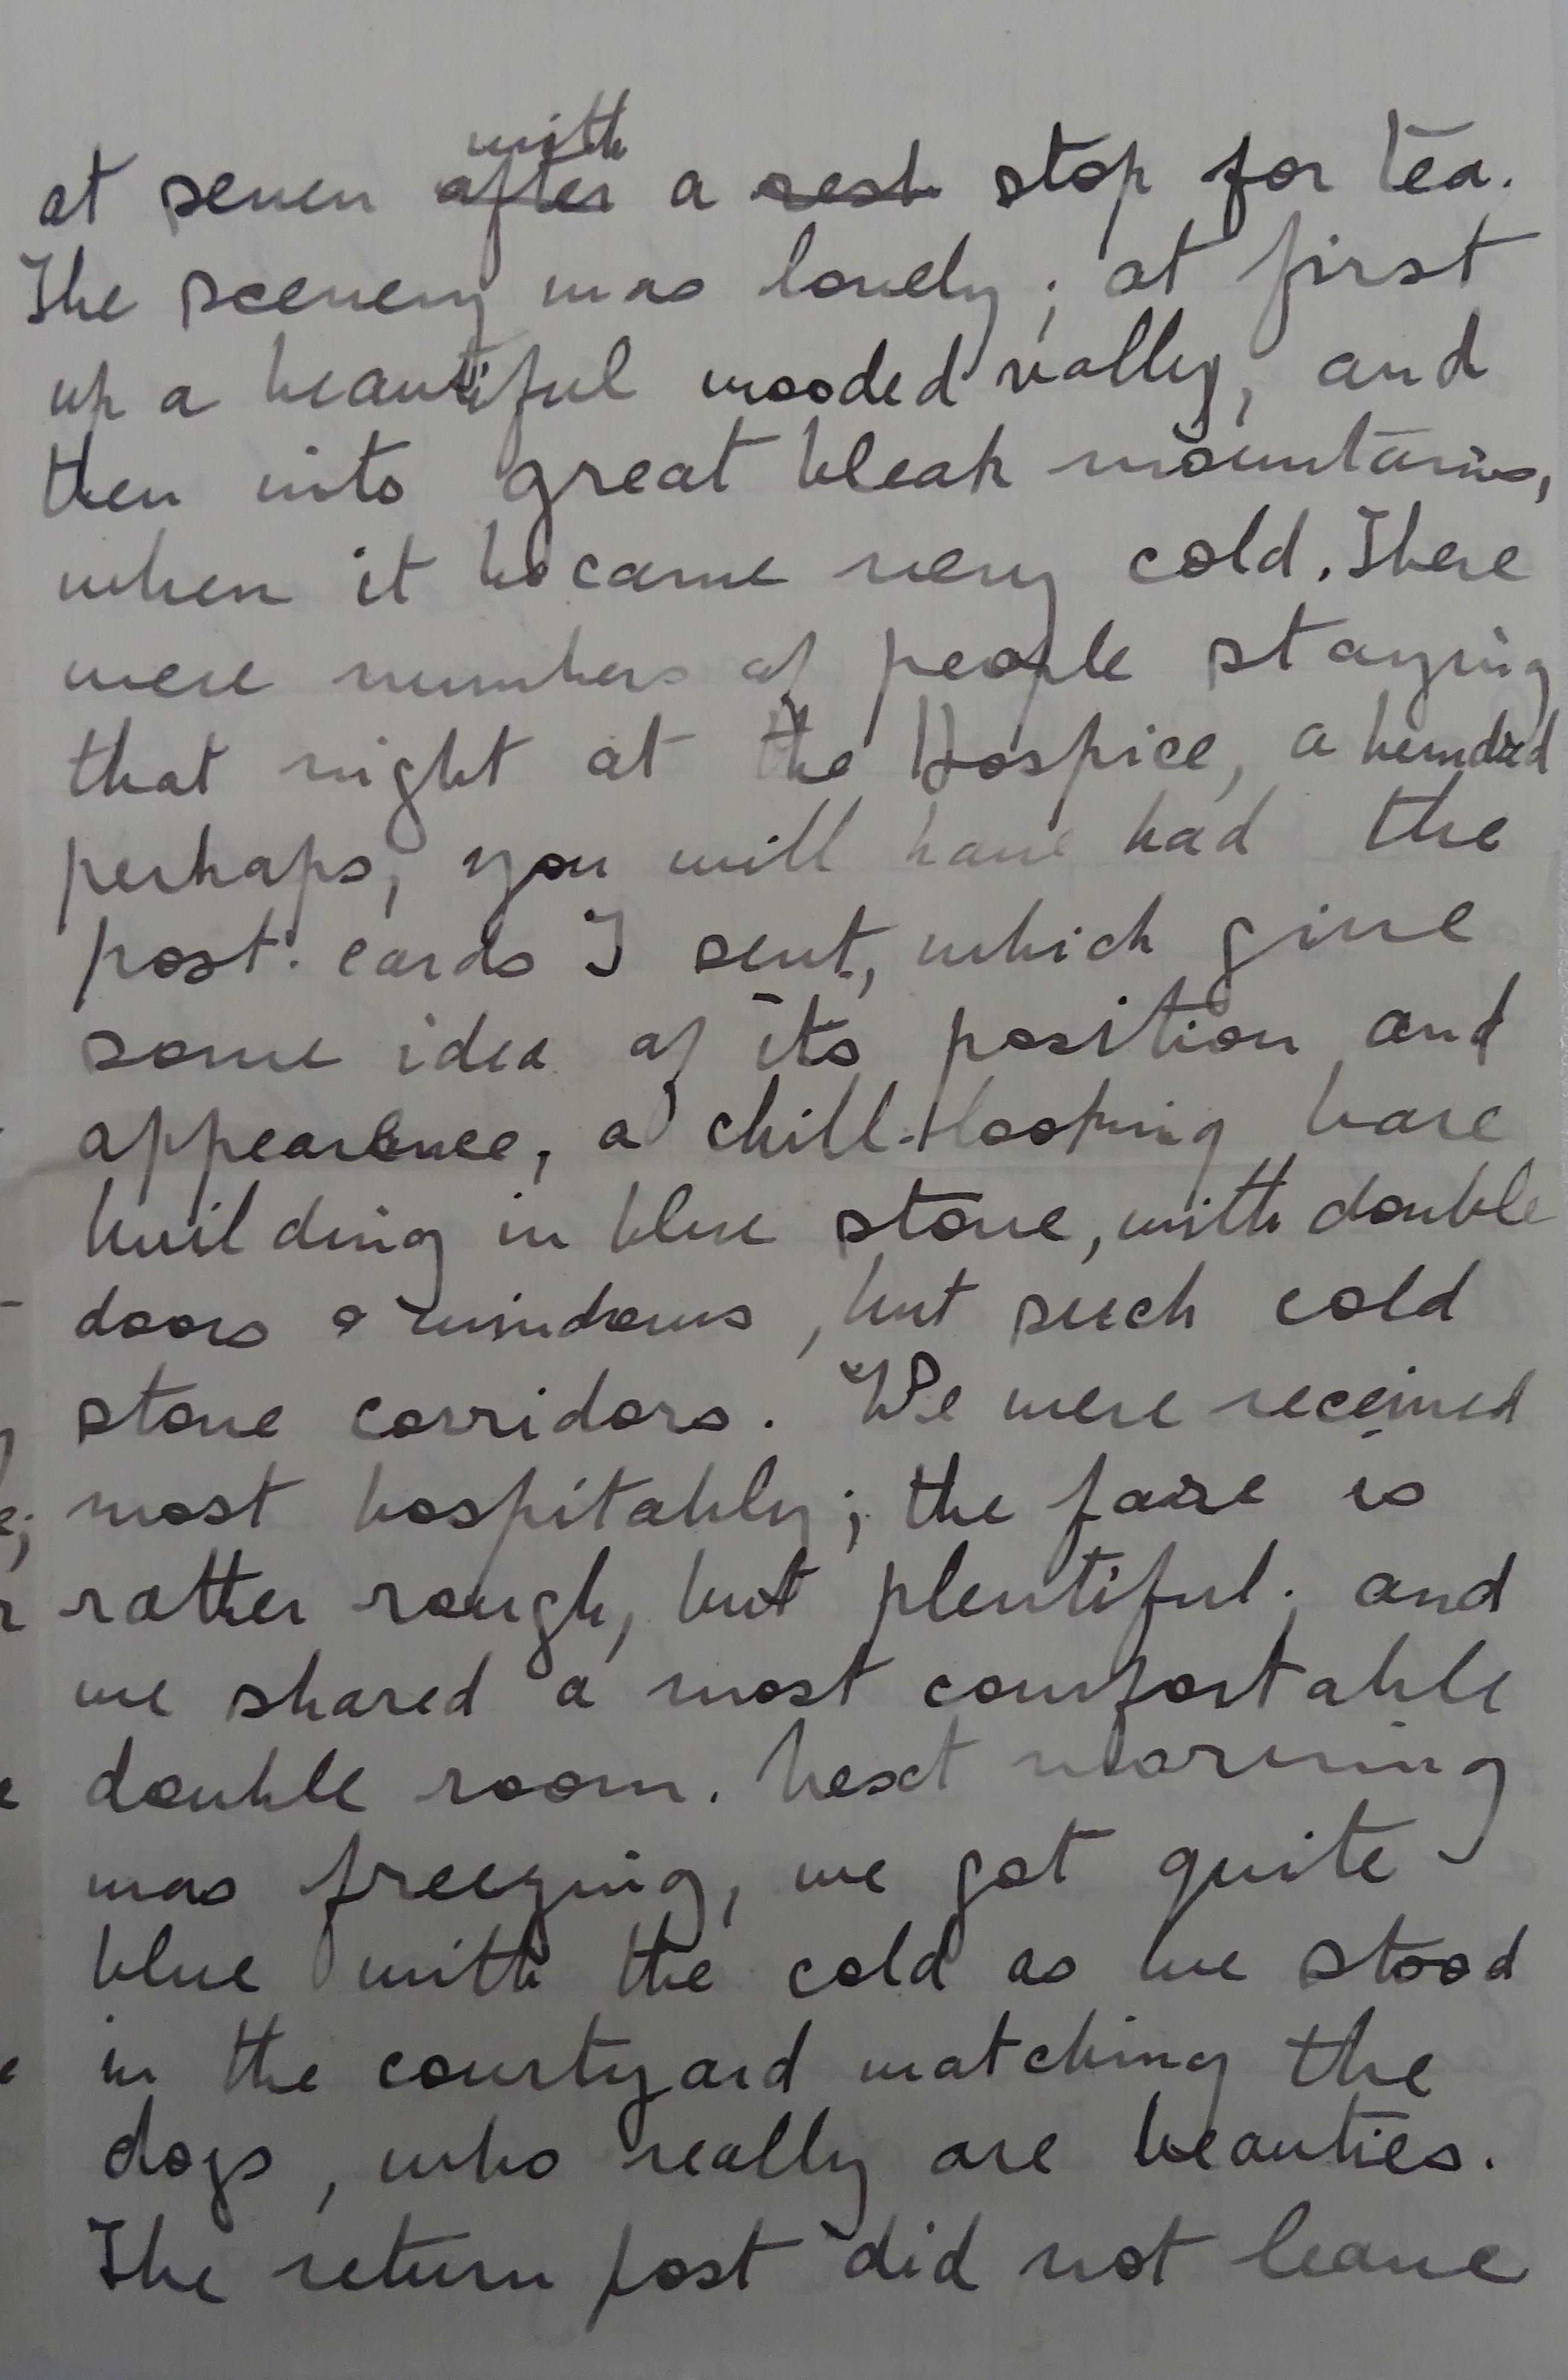 at seven after with a rest stop for tea.
The scenery was lovely; at first
up a beautiful wooded valley, and
then into great bleak mountains,
when it became very cold. There
were numbers of people staying
that night at the Hospice, a hundred
perhaps, you will have had the
post-cards I sent, which give
some idea of its position and
appearance, a chill-looking bare
building in blue stone, with double
doors & windows, but such cold
stone corridors. We were received
most hospitably; the fare is
rather rough, but plentiful; and
we shared a most comfortable
double room. Next morning
was freezing, we got quite
blue with the cold as we stood
in the courtyard watching the
dogs, who really are beauties.
The return post did not leave